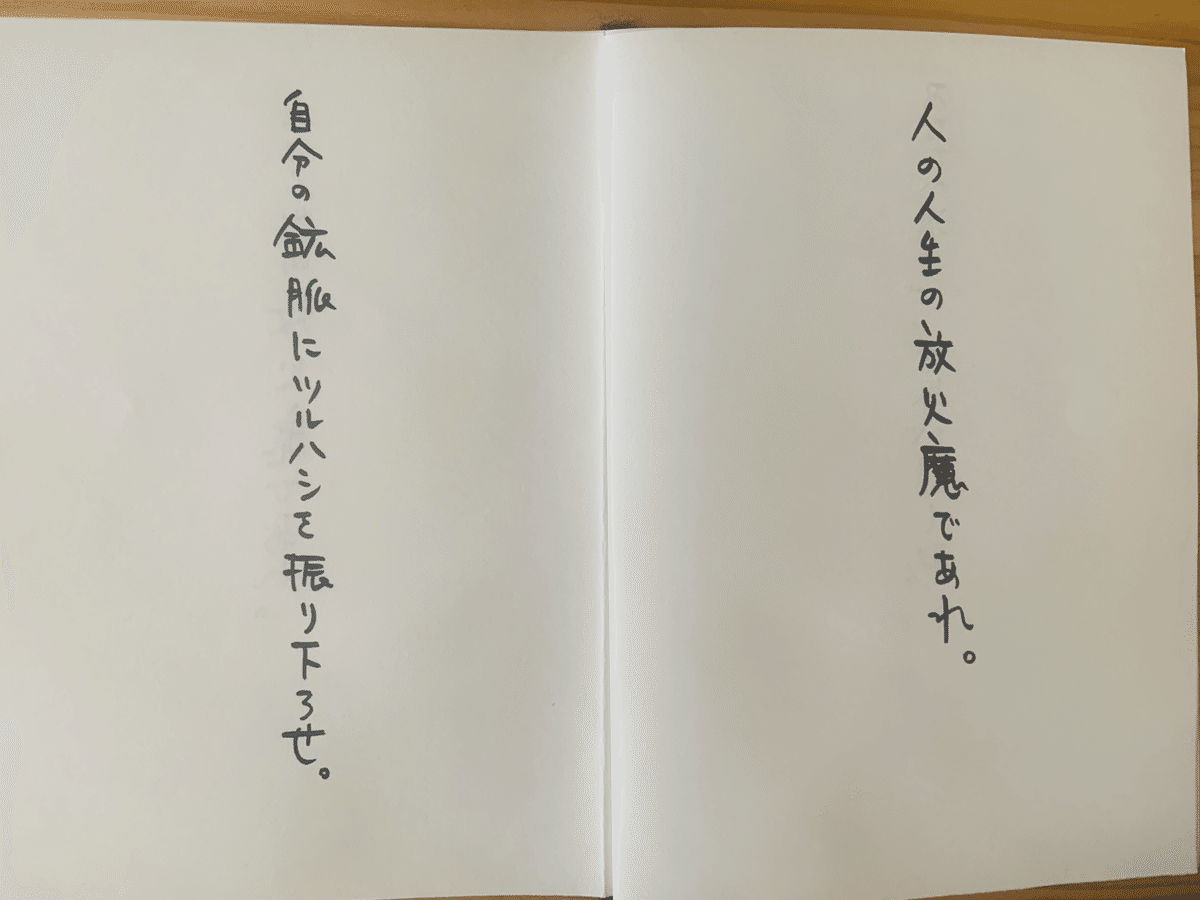 人の人生の放火魔であれ。
自分の鉱脈にツルハシを振り下ろせ。